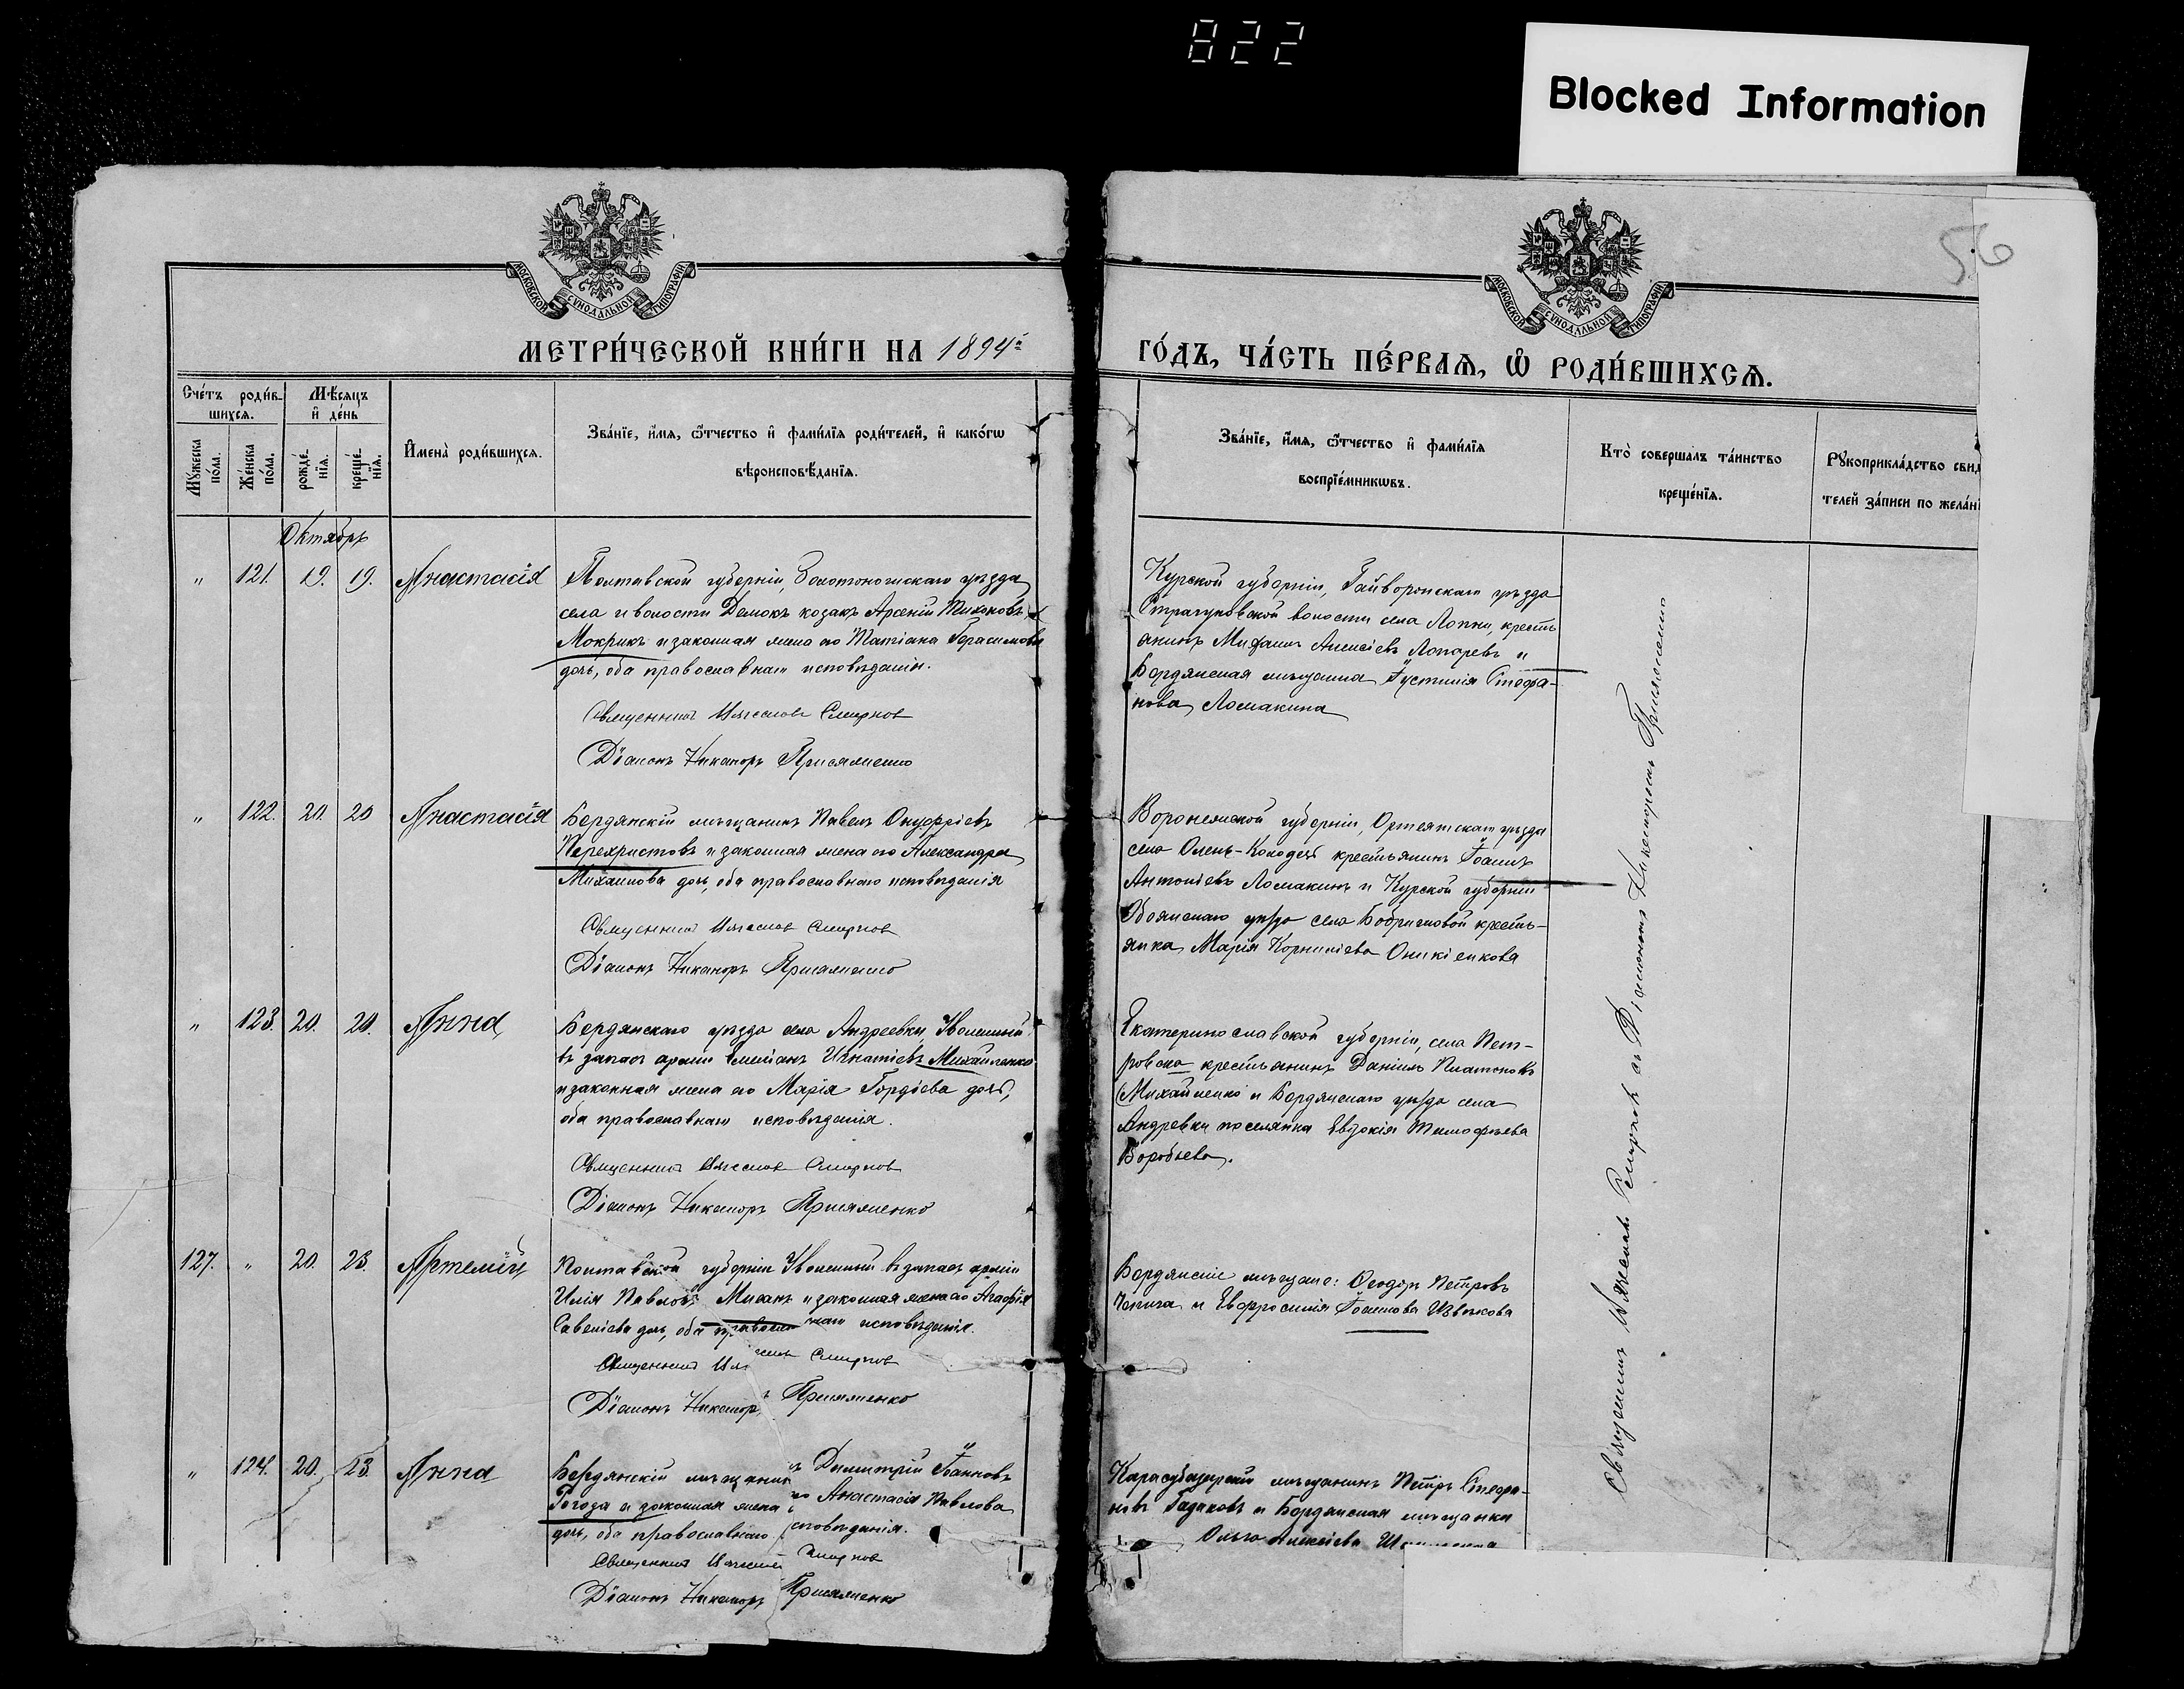 822
Blocked Information
56
МОСКОВСКОЙ СѴНОДАЛЬНОЙ ТИПОГРАФІИ
МОСКОВСКОЙ СѴНОДАЛЬНОЙ ТИПОГРАФІИ
МЕТРИ́ЧЕСКОЙ КНИ́ГИ НА 1894й
ГО́ДЪ, ЧА́СТЬ ПЕ́РВАѦ, Ѡ҆ РОДИ́ВШИХСѦ.
Сче́тъ роди́в-
шихсѧ.
Мѣ́сѧцъ
и҆ де́нь
Мꙋ́жеска по́ла.
Же́нска по́ла.
рожде́-
нїѧ.
креще́-
нїѧ.
И҆мена̀ роди́вшихсѧ.
Зва́нїе, и҆́мѧ, ѻ҆́тчество и҆ фами́лїѧ роди́телей, и҆ како́гѡ
вѣроисповѣ́данїѧ.
Зва́нїе, и҆́мѧ, ѻ҆́тчество и҆ фами́лїѧ
воспрїе́мникѡвъ.
Кто̀ соверша́лъ та́инство
креще́нїѧ.
Рꙋкоприкла́дство свид
телей за́писи по жела́н
Октябрь
" 121. 19. 19. Анастасія
Полтавской губерніи, Золотоношскаго уѣзда
села и волости Демокъ козакъ Арсеній Тихоновъ
Мокрикъ и законная жена его Татіана Герасимова
дочь, оба православнаго исповѣданія.
Священникъ Вячеславъ Смирнов
Діаконъ Никаноръ Присяженко
Курской губерніи, Гайворонскаго уѣзда
волости села Лопни, кресть
янинъ Михаилъ Алексіевъ Лопаревъ и
Бердянская мѣщанка Іустинія Стефа-
нова Ломакина
" 122. 20. 20 Анастасія
Бердянскій мѣщанинъ Павелъ Онуфріевъ
Перехристовъ и законная жена его Александра
Михаилова дочь, оба православнаго исповѣданія
Священникъ Вячеслав Смирнов
Діаконъ Никаноръ Присяженко
Воронежской губерніи, уѣзда
села Олень-Колодезя крестьянинъ Іоаннъ
Антоніевъ Ломакинъ и Курской губерніи
Обоянскаго уѣзда села Бобрышовой кресть-
янка Марія Корниліева Оникіенкова
" 123. 20. 20. Анна
Бердянскаго уѣзда села Андреевки, Уволенный
въ запасъ арміи Емиліанъ Игнатіевъ Михайленко
и законная жена его Марія Гордіева дочь,
оба православнаго исповѣданія.
Священникъ Вячеслав Смирнов
Діаконъ Никаноръ Присяженко
Екатеринославской губерніи, села Пет-
ровска крестьянинъ Даніилъ Платоновъ
Михайленко и Бердянскаго уѣзда села
Андревки поселянка Евдокія Тимофѣева
Воробьева.
127. " 20. 23. Артемій
Полтавской губерніи Уволенный въ запасъ арміи
Илія Павловъ и законная жена его Агафія
Савеліева дочь, оба православнаго исповѣданія.
Священникъ Вячеслав Смирнов
Діаконъ Никаноръ Присяженко
Бердянскіе мѣщане: Ѳеодоръ Петровъ
и Евфросинія Іоаннова Извѣкова
" 124. 20. 23. Анна
Бердянскій мѣщанинъ Димитрій Іоанновъ
Рогоза и законная жена его Анастасія Павлова
дочь, оба православнаго исповѣданія.
Священникъ Вячеслав Смирнов
Діаконъ Никаноръ Присяженко
Карасубазарскій мѣщанинъ Петръ Стефа-
новъ и Бердянская мѣщанка
Ольга Алексіева
Священникъ Вячеславъ Смирновъ съ Діакономъ Никаноромъ Присяженко